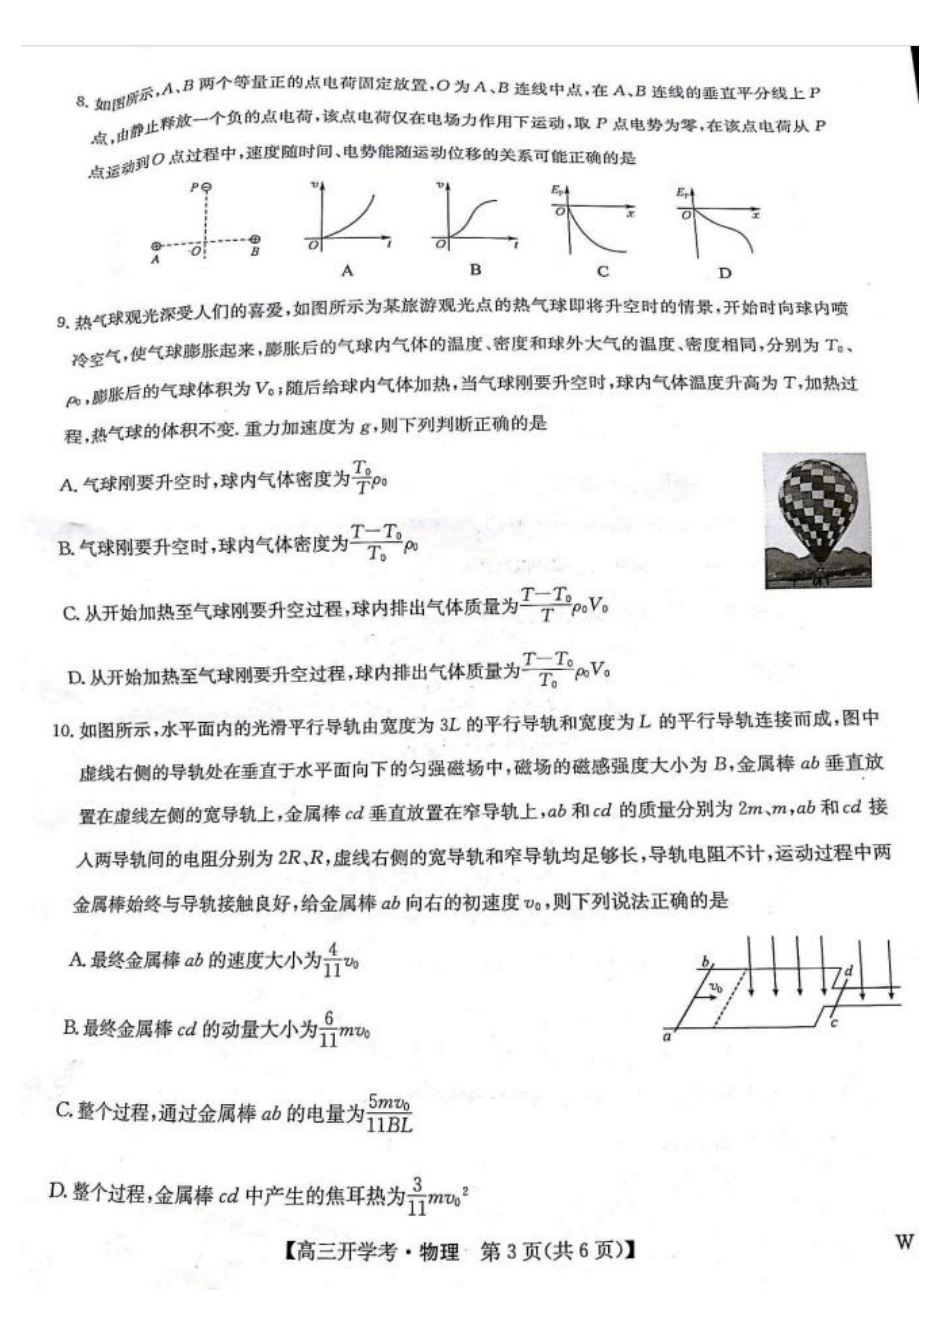 8. 如图所示,A、B 两个等量正的点电荷固定放置,O 为 A、B 连线中点,在 A、B 连线的垂直平分线上 P
点,由静止释放一个负的点电荷,该点电荷仅在电场力作用下运动,取 P 点电势为零,在该点电荷从 P
点运动到 O 点过程中,速度随时间、电势能随运动位移的关系可能正确的是
P
A O B
v O t
v O t
Eₚ O x
Eₚ O x
A B C D
9. 热气球观光深受人们的喜爱,如图所示为某旅游观光点的热气球即将升空时的情景,开始时向球内喷
冷空气,使气球膨胀起来,膨胀后的气球内气体的温度、密度和球外大气的温度、密度相同,分别为 T₀、
ρ₀,膨胀后的气球体积为 V₀;随后给球内气体加热,当气球刚要升空时,球内气体温度升高为 T,加热过
程,热气球的体积不变. 重力加速度为 g,则下列判断正确的是
A. 气球刚要升空时,球内气体密度为 T₀/T ρ₀
B. 气球刚要升空时,球内气体密度为 (T-T₀)/T₀ ρ₀
C. 从开始加热至气球刚要升空过程,球内排出气体质量为 (T-T₀)/T ρ₀V₀
D. 从开始加热至气球刚要升空过程,球内排出气体质量为 (T-T₀)/T₀ ρ₀V₀
10. 如图所示,水平面内的光滑平行导轨由宽度为 3L 的平行导轨和宽度为 L 的平行导轨连接而成,图中
虚线右侧的导轨处在垂直于水平面向下的匀强磁场中,磁场的磁感强度大小为 B,金属棒 ab 垂直放
置在虚线左侧的宽导轨上,金属棒 cd 垂直放置在窄导轨上,ab 和 cd 的质量分别为 2m、m,ab 和 cd 接
入两导轨间的电阻分别为 2R、R,虚线右侧的宽导轨和窄导轨均足够长,导轨电阻不计,运动过程中两
金属棒始终与导轨接触良好,给金属棒 ab 向右的初速度 v₀,则下列说法正确的是
A. 最终金属棒 ab 的速度大小为 4/11 v₀
B. 最终金属棒 cd 的动量大小为 6/11 mv₀
C. 整个过程,通过金属棒 ab 的电量为 5mv₀/11BL
D. 整个过程,金属棒 cd 中产生的焦耳热为 3/11 mv₀²
b d
v₀
a c
【高三开学考·物理 第 3 页(共 6 页)】
W